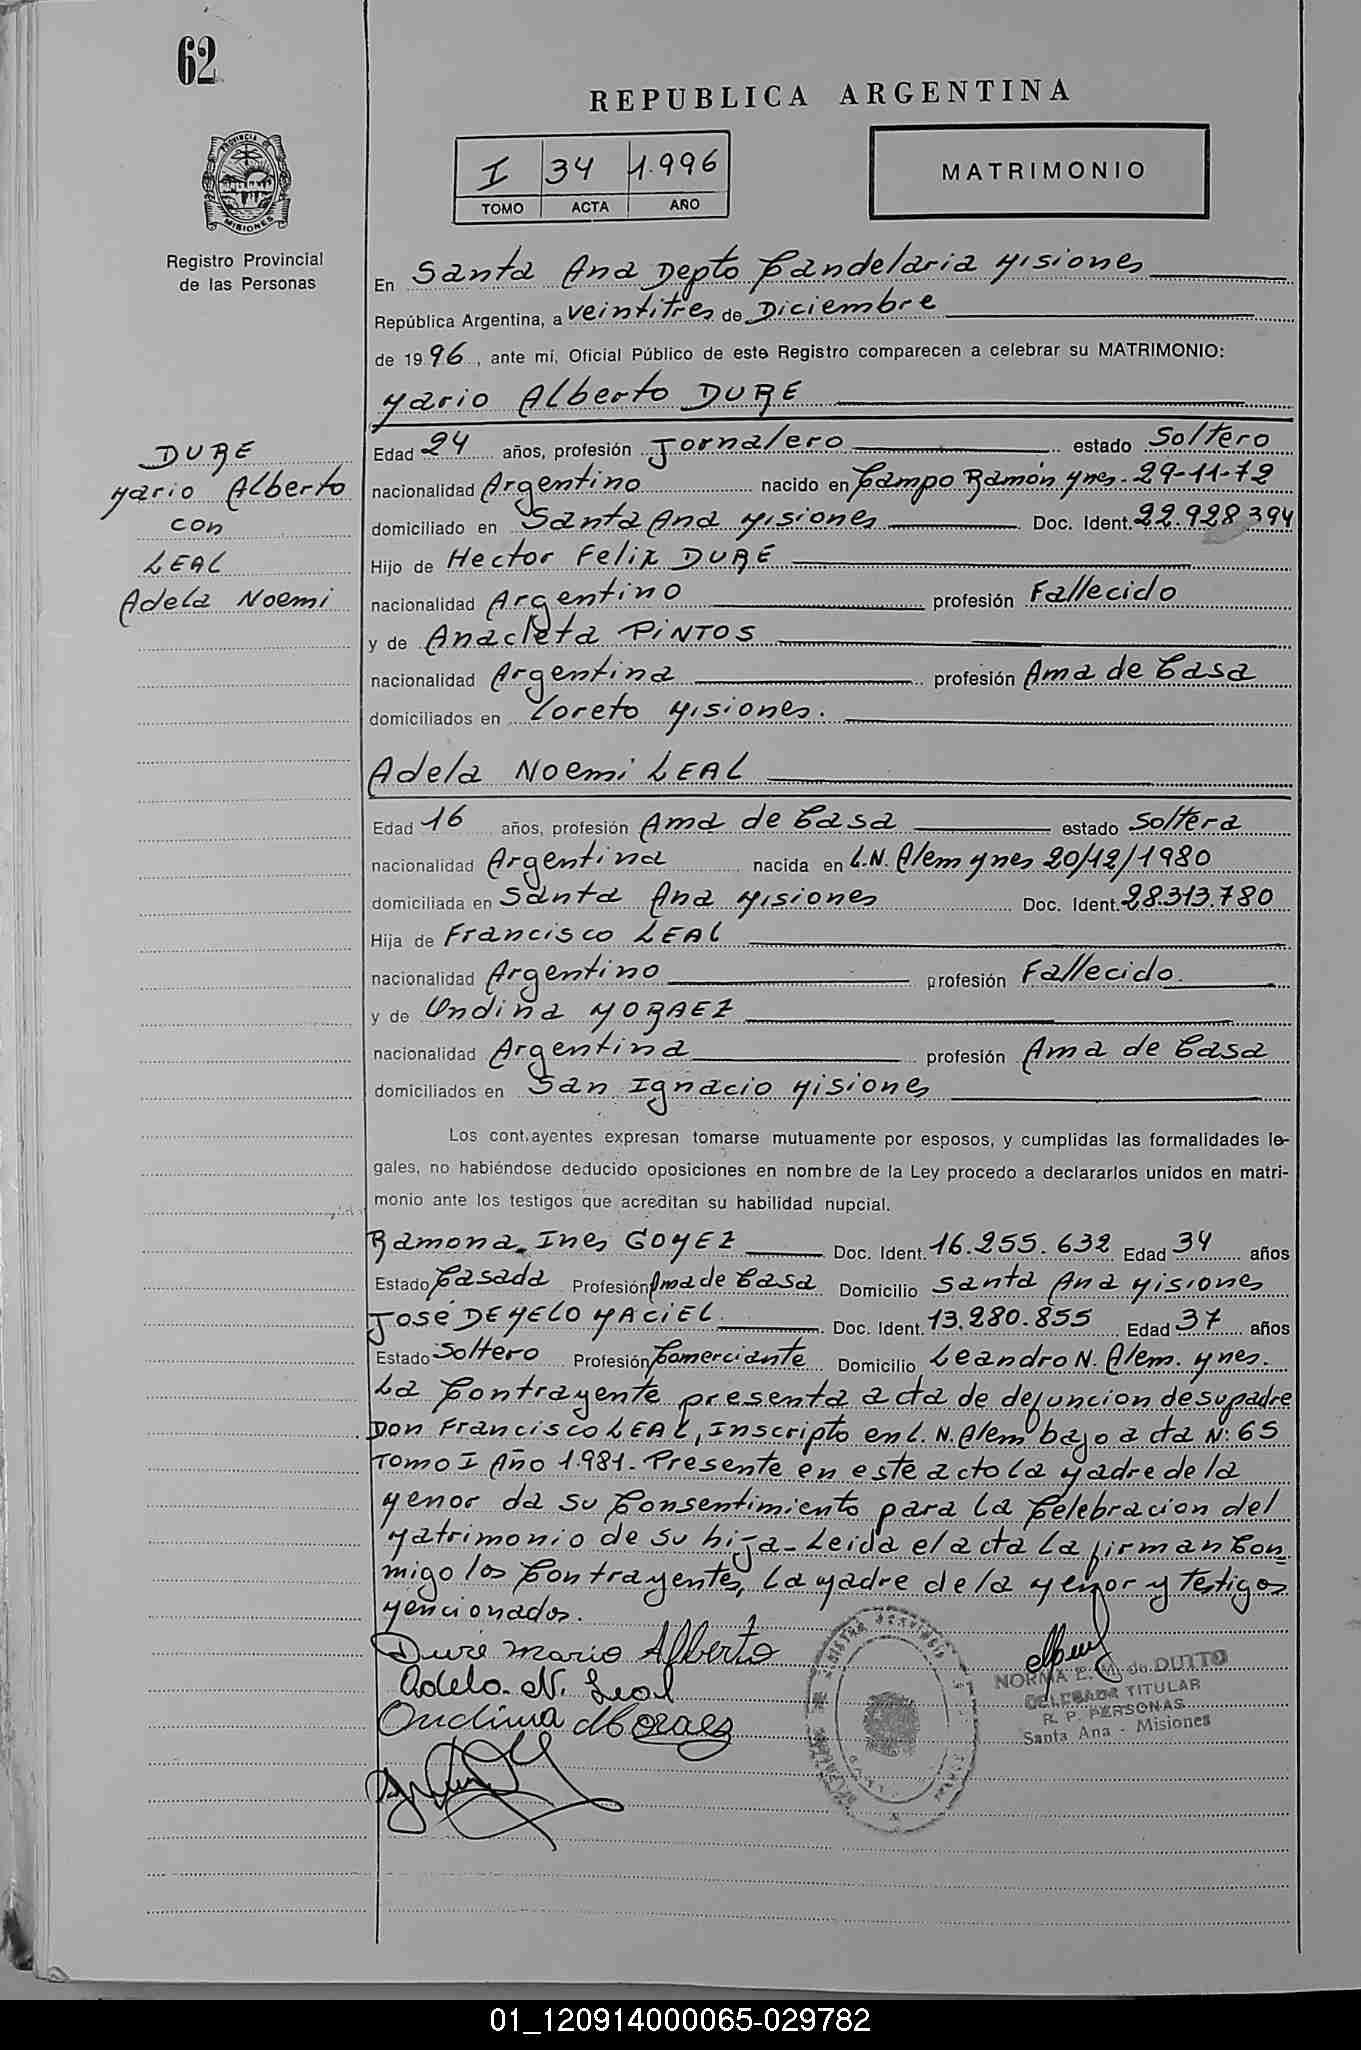 62
REPUBLICA ARGENTINA
I 34 1.996
TOMO ACTA AÑO
MATRIMONIO
PROVINCIA DE
MISIONES
Registro Provincial
de las Personas
En Santa Ana Depto Candelaria Misiones
República Argentina, a veintitres de Diciembre
de 1996, ante mí, Oficial Público de este Registro comparecen a celebrar su MATRIMONIO:
Mario Alberto DURE
DURE
Mario Alberto
con
LEAL
Adela Noemi
Edad 24 años, profesión Jornalero estado Soltero
nacionalidad Argentino nacido en Campo Ramón Mnes. 29-11-72
domiciliado en Santa Ana Misiones Doc. Ident. 22.928.394
Hijo de Hector Felix DURE
nacionalidad Argentino profesión Fallecido
y de Anacleta PINTOS
nacionalidad Argentina profesión Ama de Casa
domiciliados en Loreto Misiones.
Adela Noemi LEAL
Edad 16 años, profesión Ama de Casa estado Soltera
nacionalidad Argentina nacida en L.N. Alem Mnes 20/12/1980
domiciliada en Santa Ana Misiones Doc. Ident. 28.313.780
Hija de Francisco LEAL
nacionalidad Argentino profesión Fallecido.
y de Undina MORAEZ
nacionalidad Argentina profesión Ama de Casa
domiciliados en San Ignacio Misiones
Los cont.ayentes expresan tomarse mutuamente por esposos, y cumplidas las formalidades le-
gales, no habiéndose deducido oposiciones en nombre de la Ley procedo a declararlos unidos en matri-
monio ante los testigos que acreditan su habilidad nupcial.
Ramona Ines GOMEZ Doc. Ident. 16.255.632 Edad 34 años
Estado Casada Profesión Ama de Casa Domicilio Santa Ana Misiones
JOSÉ DE MELO MACIEL Doc. Ident. 13.280.855 Edad 37 años
Estado Soltero Profesión Comerciante Domicilio Leandro N. Alem. Mnes.
La Contrayente presenta acta de defuncion de su padre
Don Francisco LEAL, Inscripto en L. N. Alem bajo acta N: 65
Tomo I Año 1.981- Presente en este acto la Madre de la
Menor da su Consentimiento para la Celebracion del
Matrimonio de su hija- Leida el acta la firman Con
migo los Contrayentes, La Madre de la Menor y Testigos
Mencionados.
Duré Mario Alberto
Adela N. Leal
Ondina Moraez
NORMA E. M. de DUTTO
DELEGADA TITULAR
R. P. PERSONAS
Santa Ana - Misiones
01_120914000065-029782